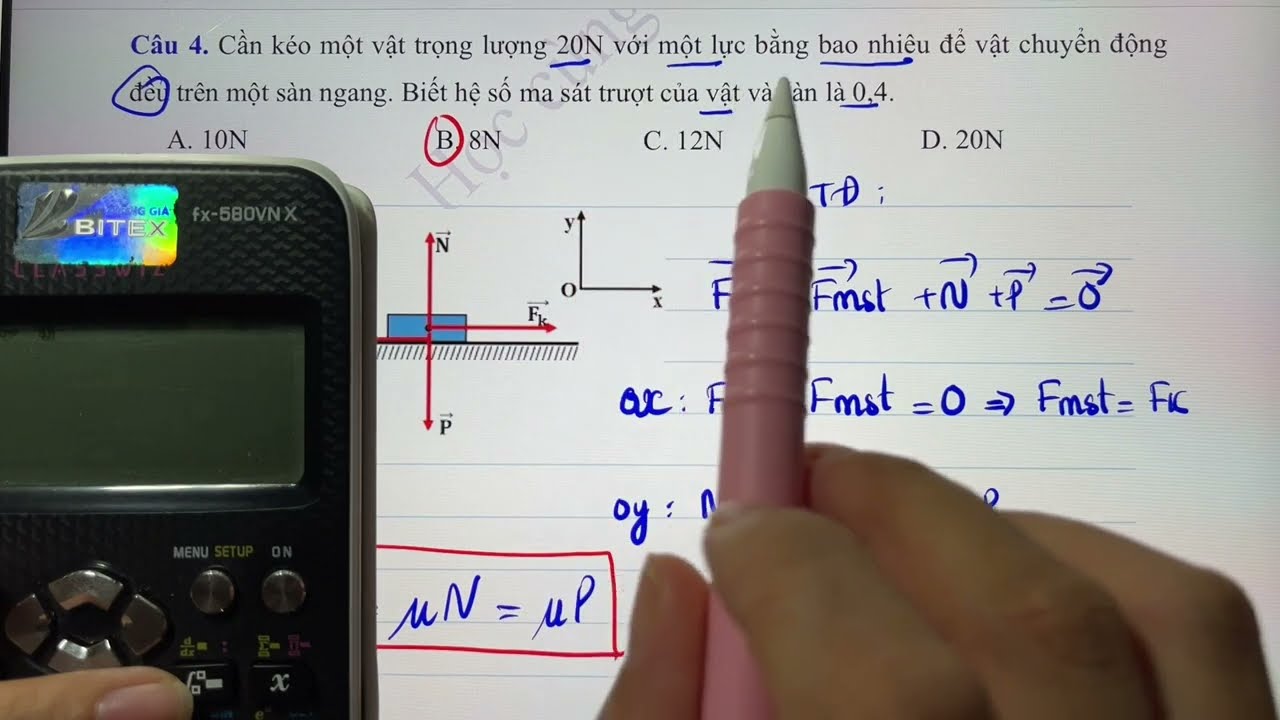 Câu 4. Cần kéo một vật trọng lượng 20N với một lực bằng bao nhiêu để vật chuyển động
đều trên một sàn ngang. Biết hệ số ma sát trượt của vật và àn là 0,4.
A. 10N B. 8N C. 12N D. 20N
Học cùng
BITEX
fx-580VN X
CLASSWIZ
N
y
O
x
Fk
P
TĐ :
F Fmst + N + P = 0
ox : F Fmst = 0 => Fmst = Fk
oy : N P
μN = μP
MENU SETUP ON
x